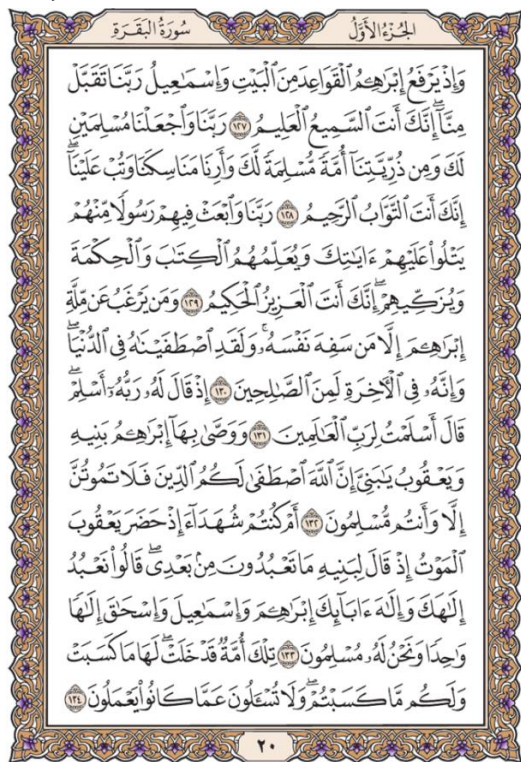 الجُزْءُ الأَوَّلُ
سُورَةُ البَقَرَةِ
وَإِذْ يَرْفَعُ إِبْرَٰهِـۧمُ ٱلْقَوَاعِدَ مِنَ ٱلْبَيْتِ وَإِسْمَٰعِيلُ رَبَّنَا تَقَبَّلْ
مِنَّآۖ إِنَّكَ أَنتَ ٱلسَّمِيعُ ٱلْعَلِيمُ ١٢٧ رَبَّنَا وَٱجْعَلْنَا مُسْلِمَيْنِ
لَكَ وَمِن ذُرِّيَّتِنَآ أُمَّةً مُّسْلِمَةً لَّكَ وَأَرِنَا مَنَاسِكَنَا وَتُبْ عَلَيْنَآۖ
إِنَّكَ أَنتَ ٱلتَّوَّابُ ٱلرَّحِيمُ ١٢٨ رَبَّنَا وَٱبْعَثْ فِيهِمْ رَسُولًا مِّنْهُمْ
يَتْلُوا۟ عَلَيْهِمْ ءَايَٰتِكَ وَيُعَلِّمُهُمُ ٱلْكِتَٰبَ وَٱلْحِكْمَةَ
وَيُزَكِّيهِمْۚ إِنَّكَ أَنتَ ٱلْعَزِيزُ ٱلْحَكِيمُ ١٢٩ وَمَن يَرْغَبُ عَن مِّلَّةِ
إِبْرَٰهِـۧمَ إِلَّا مَن سَفِهَ نَفْسَهُۥۚ وَلَقَدِ ٱصْطَفَيْنَٰهُ فِى ٱلدُّنْيَاۖ
وَإِنَّهُۥ فِى ٱلْءَاخِرَةِ لَمِنَ ٱلصَّٰلِحِينَ ١٣٠ إِذْ قَالَ لَهُۥ رَبُّهُۥٓ أَسْلِمْۖ
قَالَ أَسْلَمْتُ لِرَبِّ ٱلْعَٰلَمِينَ ١٣١ وَوَصَّىٰ بِهَآ إِبْرَٰهِـۧمُ بَنِيهِ
وَيَعْقُوبُ يَٰبَنِىَّ إِنَّ ٱللَّهَ ٱصْطَفَىٰ لَكُمُ ٱلدِّينَ فَلَا تَمُوتُنَّ
إِلَّا وَأَنتُم مُّسْلِمُونَ ١٣٢ أَمْ كُنتُمْ شُهَدَآءَ إِذْ حَضَرَ يَعْقُوبَ
ٱلْمَوْتُ إِذْ قَالَ لِبَنِيهِ مَا تَعْبُدُونَ مِنۢ بَعْدِى قَالُوا۟ نَعْبُدُ
إِلَٰهَكَ وَإِلَٰهَ ءَابَآئِكَ إِبْرَٰهِـۧمَ وَإِسْمَٰعِيلَ وَإِسْحَٰقَ إِلَٰهًا
وَٰحِدًا وَنَحْنُ لَهُۥ مُسْلِمُونَ ١٣٣ تِلْكَ أُمَّةٌ قَدْ خَلَتْۖ لَهَا مَا كَسَبَتْ
وَلَكُم مَّا كَسَبْتُمْۖ وَلَا تُسْـَٔلُونَ عَمَّا كَانُوا۟ يَعْمَلُونَ ١٣٤
٢٠